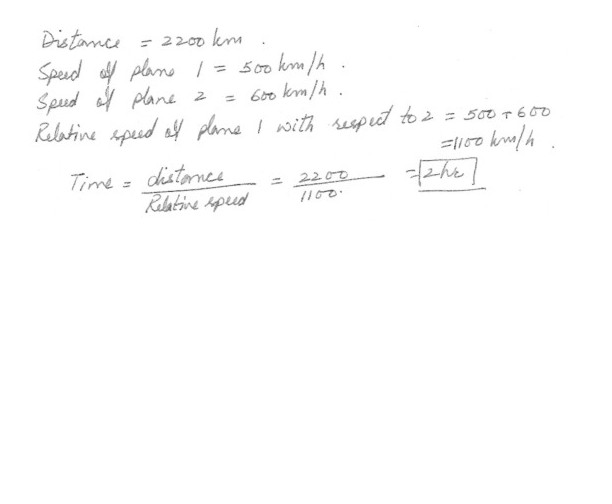 Distance = 2200 km .
Speed of plane 1 = 500 km/h .
Speed of plane 2 = 600 km/h .
Relative speed of plane 1 with respect to 2 = 500 + 600
=1100 km/h .
Time = distance / Relative speed = 2200 / 1100. = 2 hr